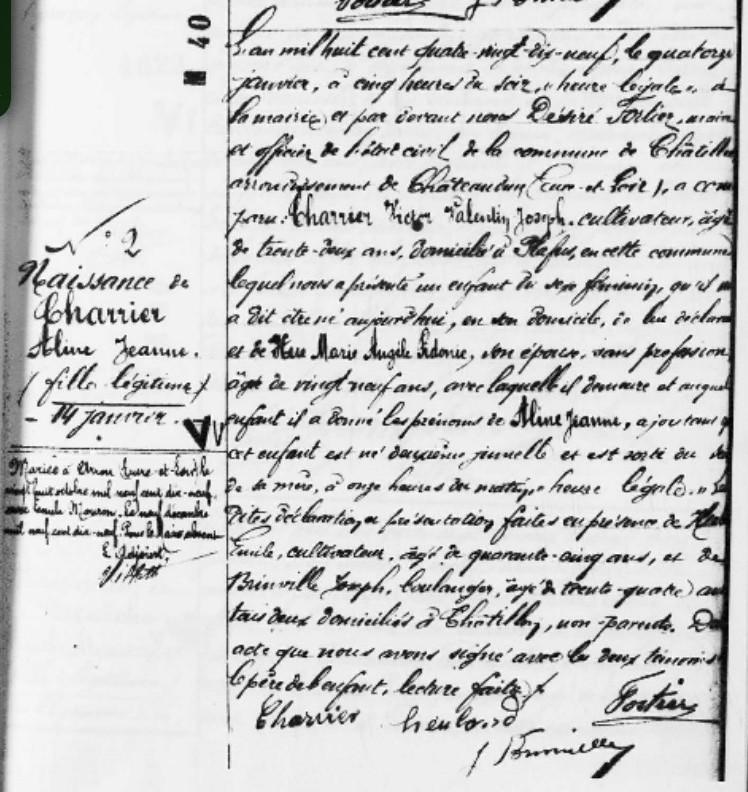 M 40
L'an mil huit cent quatre-vingt-dix-neuf, le quatorze
janvier, à cinq heures du soir, « heure légale », à
la mairie et par devant nous Désiré Fortier, maire
et officier de l'état civil de la commune de Châtillon
arrondissement de Châteaudun (Eure-et-Loir), a com
paru: Charrier Victor Valentin Joseph, cultivateur, âgé
de trente-deux ans, domicilié à en cette commune
lequel nous a présenté un enfant du sexe féminin, qu'il n
a dit être né aujourd'hui, en son domicile, de lui déclara
et de Marie Angèle Sidonie, son épouse, sans profession
âgée de vingt neuf ans, avec laquelle il demeure et auquel
enfant il a donné les prénoms de Aline Jeanne, ajoutant q
cet enfant est né deuxième jumelle et est sorti du se
de sa mère, à onze heures du matin, « heure légale. » Les
dites déclaration et présentation faites en présence de
Emile, cultivateur, âgé de quarante-cinq ans, et de
Brinville Joseph, boulanger, âgé de trente-quatre an
tous deux domiciliés à Châtillon, non-parents. Du
acte que nous avons signé avec les deux témoins
le père de l'enfant, lecture faite./.
Charrier heulard Fortier
J Brinville
N° 2
Naissance de
Charrier
Aline Jeanne.
(fille légitime)
- 14 janvier.
Mariée à Eure-et-Loir le
vingt huit octobre mil neuf cent dix-neuf
avec Emile Mouron. Le neuf décembre
mil neuf cent dix-neuf. Pour le Maire absent
L'Adjoint